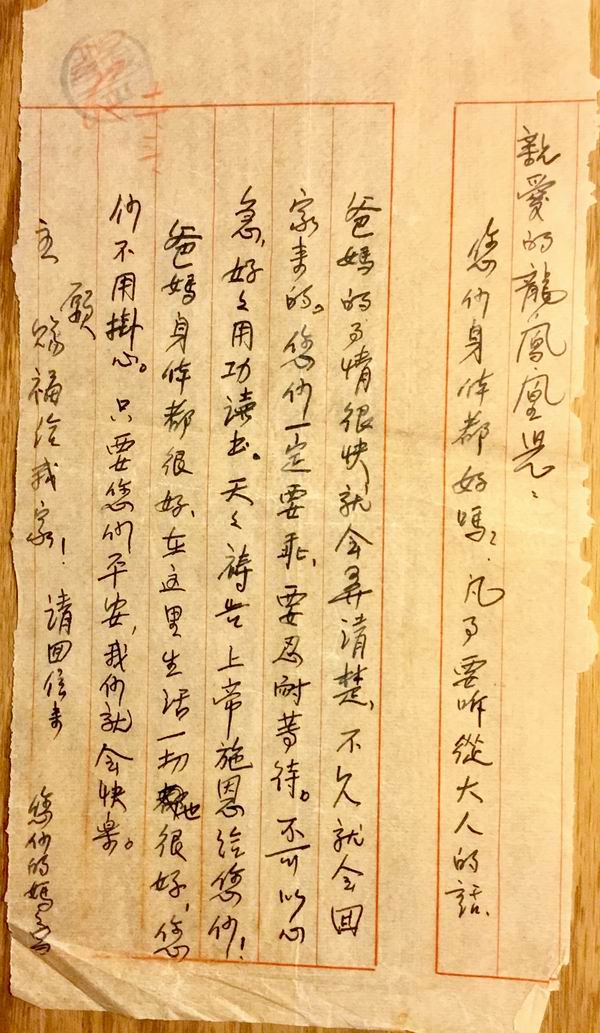 親愛的龍,鳳,凰兒:
您们身体都好嗎?凡事要听從大人的話.
爸媽的事情很快就会弄清楚,不久就会回
家来的。您们一定要乖,要忍耐等待。不可以心
急,好々用功讀书。天々祷告上帝施恩给您们!
爸媽身体都很好,在这里生活一切也很好,您
们不用掛心。只要您们平安,我们就会快樂。
願
主賜福给我家! 請回信来 您们的媽